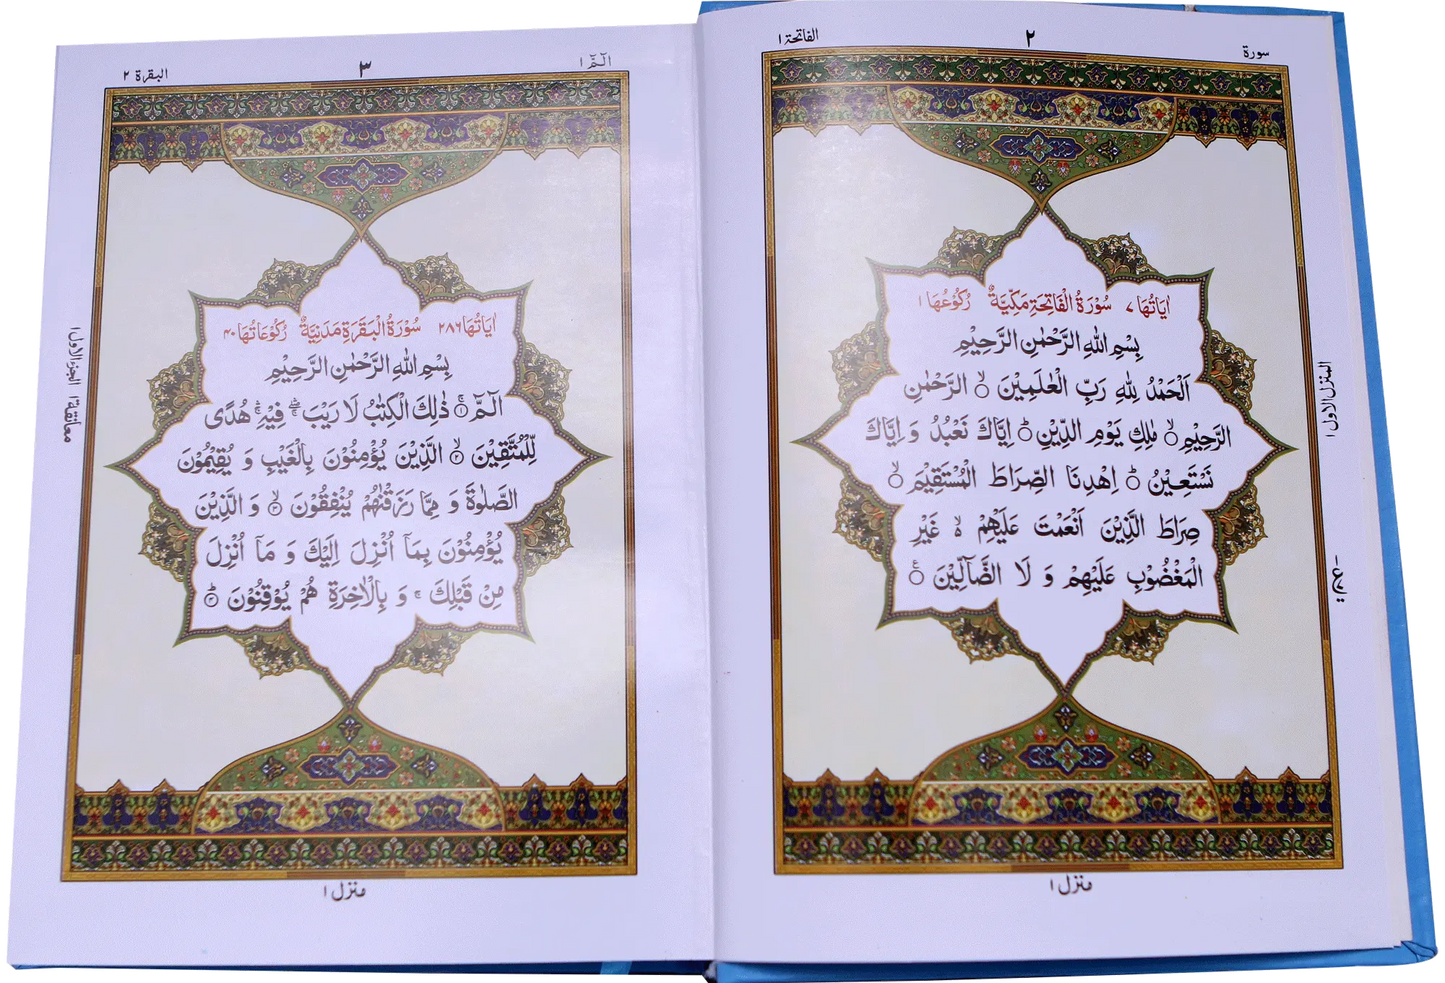 سورة
٢
الفاتحة ١
اٰيَاتُهَا ٧ سُوْرَةُ الْفَاتِحَةِ مَكِّيَّةٌ رُكُوْعُهَا ١
بِسْمِ اللهِ الرَّحْمٰنِ الرَّحِيْمِ
اَلْحَمْدُ لِلّٰهِ رَبِّ الْعٰلَمِيْنَ ۙ الرَّحْمٰنِ
الرَّحِيْمِ ۙ مٰلِكِ يَوْمِ الدِّيْنِ ؕ اِيَّاكَ نَعْبُدُ وَ اِيَّاكَ
نَسْتَعِيْنُ ؕ اِهْدِنَا الصِّرَاطَ الْمُسْتَقِيْمَ ۙ
صِرَاطَ الَّذِيْنَ اَنْعَمْتَ عَلَيْهِمْ ۙ غَيْرِ
الْمَغْضُوْبِ عَلَيْهِمْ وَ لَا الضَّآلِّيْنَ
المنزل الاول ١
منزل ١
الٓمّٓ ١
٣
البقرة ٢
اٰيَاتُهَا ٢٨٦ سُوْرَةُ الْبَقَرَةِ مَدَنِيَّةٌ رُكُوْعَاتُهَا ٤٠
بِسْمِ اللهِ الرَّحْمٰنِ الرَّحِيْمِ
الٓمّٓ ۚ ١ ذٰلِكَ الْكِتٰبُ لَا رَيْبَ ۛ فِيْهِ ۛ هُدًى
لِّلْمُتَّقِيْنَ ۙ ٢ الَّذِيْنَ يُؤْمِنُوْنَ بِالْغَيْبِ وَ يُقِيْمُوْنَ
الصَّلٰوةَ وَ مِمَّا رَزَقْنٰهُمْ يُنْفِقُوْنَ ۙ ٣ وَ الَّذِيْنَ
يُؤْمِنُوْنَ بِمَآ اُنْزِلَ اِلَيْكَ وَ مَآ اُنْزِلَ
مِنْ قَبْلِكَ ۚ وَ بِالْاٰخِرَةِ هُمْ يُوْقِنُوْنَ ؕ ٤
معانقة ١ الجزء الاول ١
منزل ١